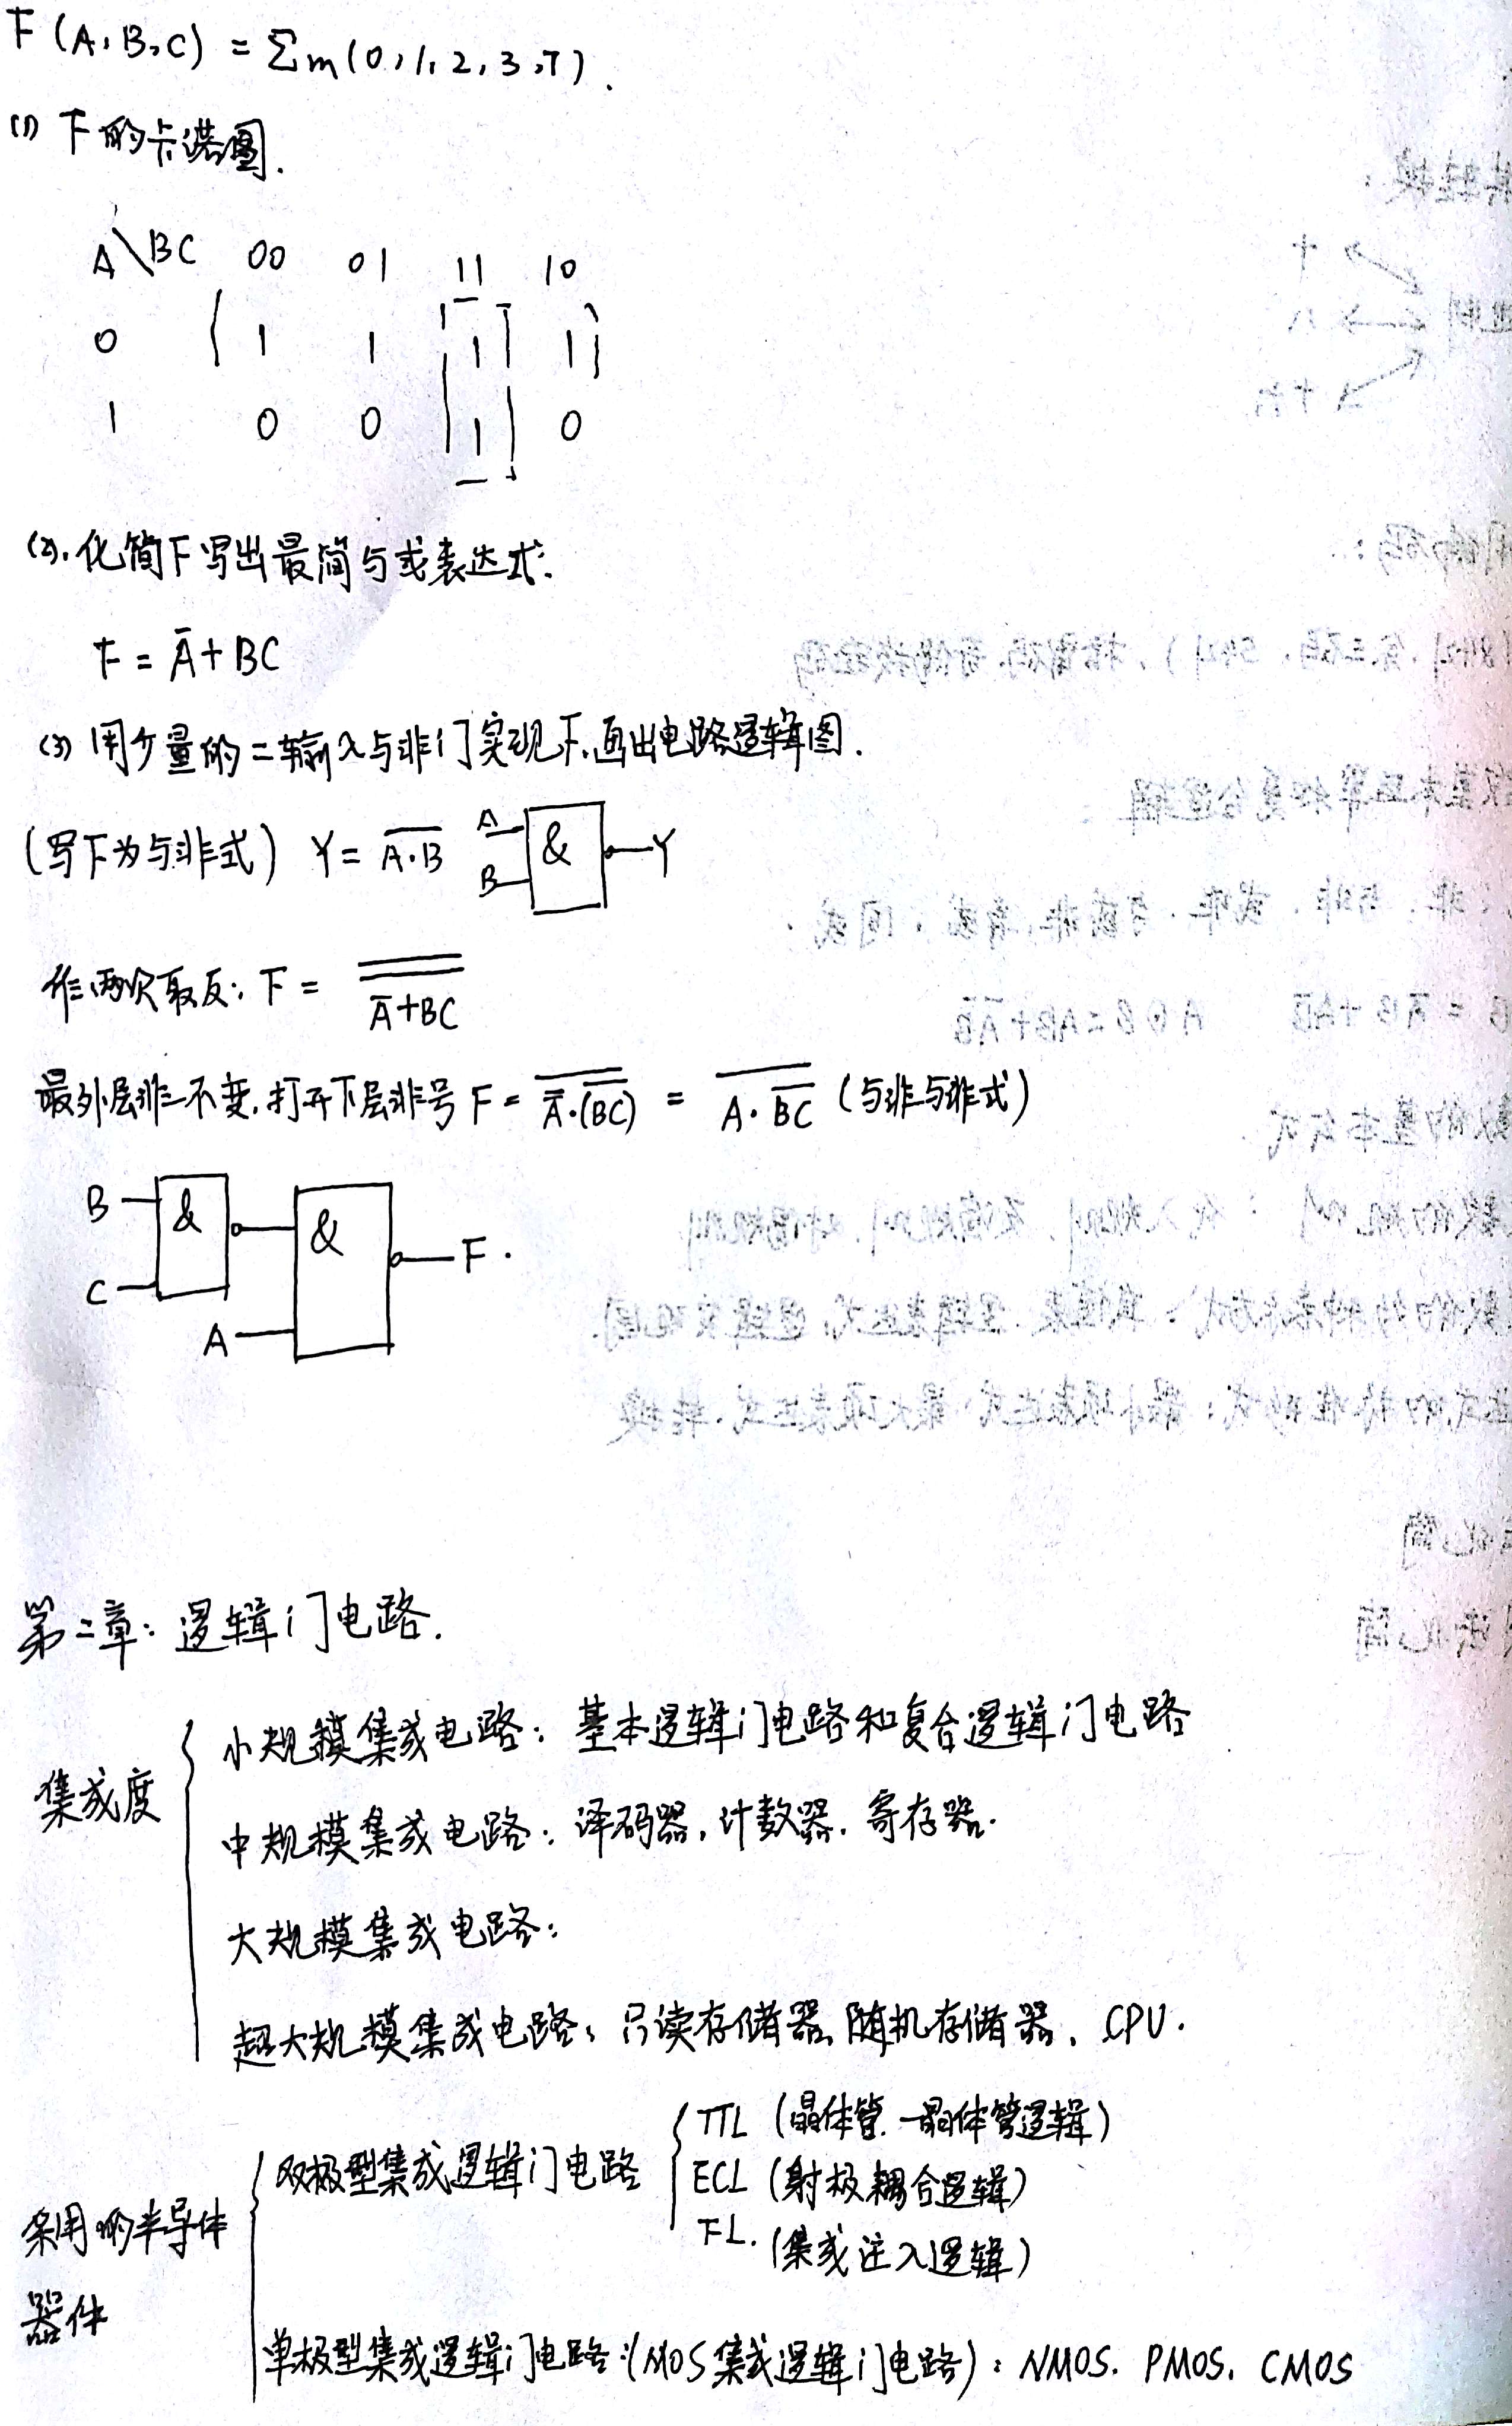 F(A,B,C) = Σm(0,1,2,3,7).
(1) F的卡诺图.
A\BC 00 01 11 10
0 1 1 1 1
1 0 0 1 0
(2).化简F写出最简与或表达式:
F = A̅+BC
(3) 用少量的二输入与非门实现F,画出电路逻辑图.
(写F为与非式) Y= \overline{A·B} A B & Y
作两次取反: F = \overline{\overline{A̅+BC}}
最外层非不变,打开下层非号 F = \overline{\overline{\overline{A}}·\overline{(BC)}} = \overline{A·\overline{BC}} (与非与非式)
B & & F.
C
A
第二章: 逻辑门电路.
集成度
小规模集成电路: 基本逻辑门电路和复合逻辑门电路
中规模集成电路: 译码器,计数器.寄存器.
大规模集成电路:
超大规模集成电路: 只读存储器、随机存储器、CPU.
采用的半导体器件
双极型集成逻辑门电路
TTL (晶体管.-晶体管逻辑)
ECL (射极耦合逻辑)
(集成注入逻辑)
单极型集成逻辑门电路:(MOS集成逻辑门电路): NMOS. PMOS. CMOS